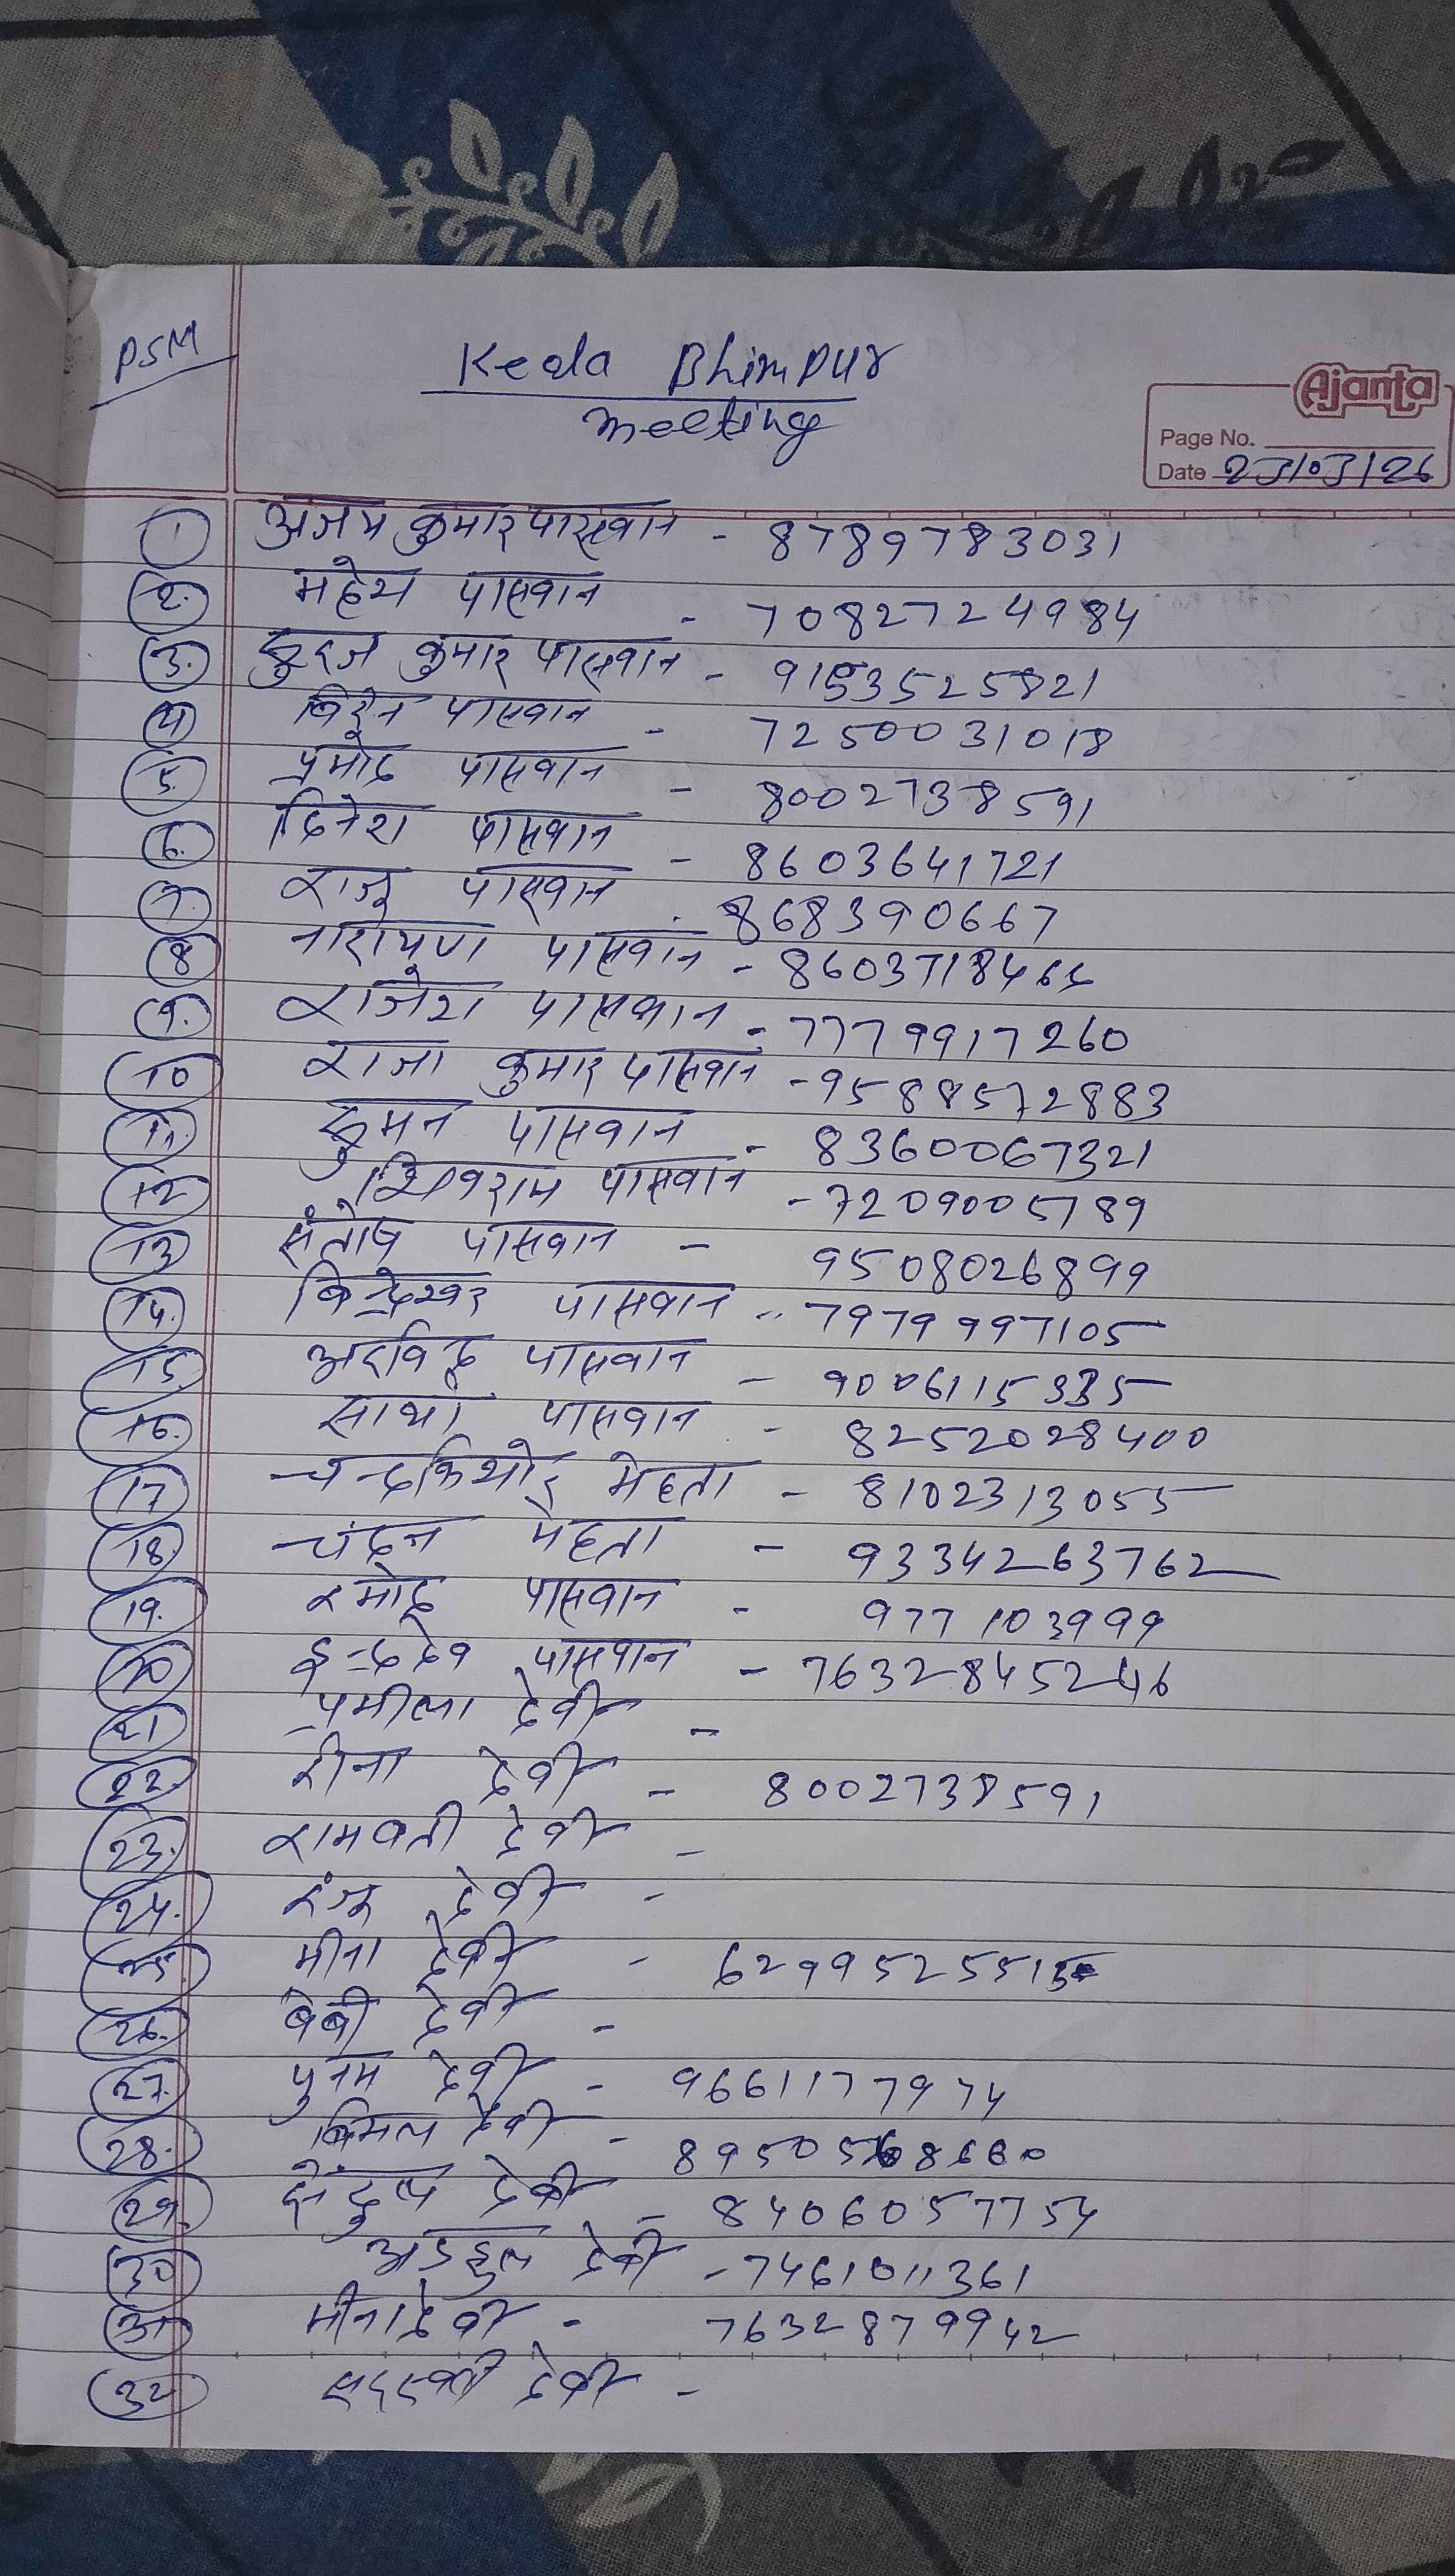 PSM
Keola Bhimpur
meeting
Ajanta
Page No.
Date 23/03/26
1 अजय कुमार पासवान - 8789783031
2. महेश पासवान - 7082724984
3. सुरज कुमार पासवान - 9153525821
4 बिरेन पासवान - 7250031018
5. प्रमोद पासवान - 8002738591
6. दिनेश पासवान - 8603641721
7. राजू पासवान - 868390667
8 नारायण पासवान - 8603718465
9. राजेश पासवान - 7779917260
10 राजा कुमार पासवान - 9588572883
11. सुमन पासवान - 8360067321
12 पासवान - 7209005789
13 संतोष पासवान - 9508026899
14. बिन्देश्वर पासवान - 7979997105
15. अरविंद पासवान - 9006115335
16. साधो पासवान - 8252028400
17 चन्दकिशोर मेहता - 8102313055
18. चंदन मेहता - 9334263762
19. रमोद पासवान - 977103999
20 इन्ददेव पासवान - 7632845246
21 प्रमीला देवी -
22. रीना देवी - 8002738591
23. रामवती देवी -
24. रंजू देवी -
25. मीना देवी - 629952551
26. बेबी देवी -
27. पुनम देवी - 9661177974
28. बिमल देवी - 8950568660
29. देवी - 8406057754
30 अड़हुल देवी - 7461011361
31 मीना देवी - 7632879942
32 देवी -